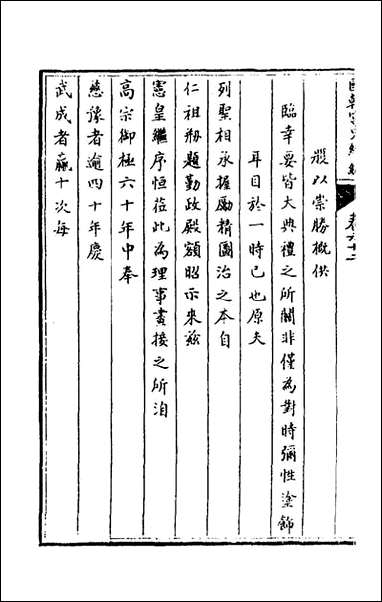 國朝宮史續編 卷六十二
殿以崇勝概供
臨幸要皆大典禮之所關非僅為對時彌性塗飾
耳目於一時已也原夫
列聖相承握勵精圖治之本自
仁祖刱題勤政殿額昭示來茲
憲皇繼序恒莅此為理事晝接之所洎
高宗御極六十年中奉
慈豫者逾四十年慶
武成者贏十次每